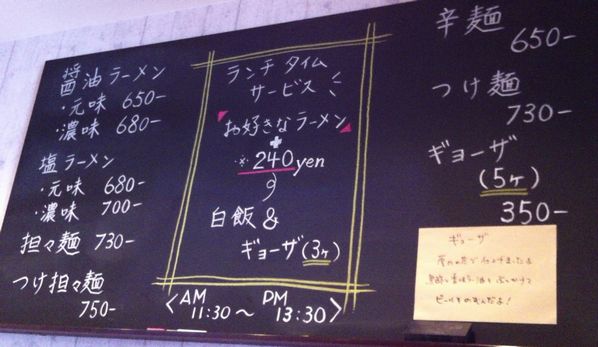 醤油ラーメン
・元味 650-
・濃味 680-
塩ラーメン
・元味 680-
・濃味 700-
担々麺 730-
つけ担々麺
750-
ランチタイム
サービス
お好きなラーメン
+
※240yen
白飯&
ギョーザ(3ヶ)
<AM 11:30〜 PM 13:30>
辛麺
650-
つけ麺
730-
ギョーザ
(5ヶ)
350-
ギョーザ